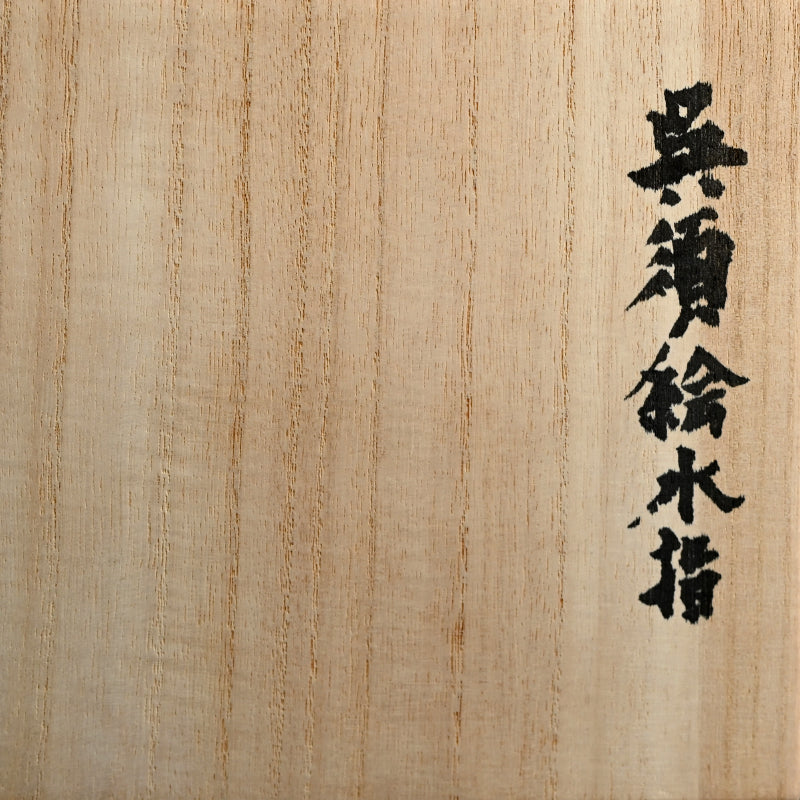 呉須絵水指